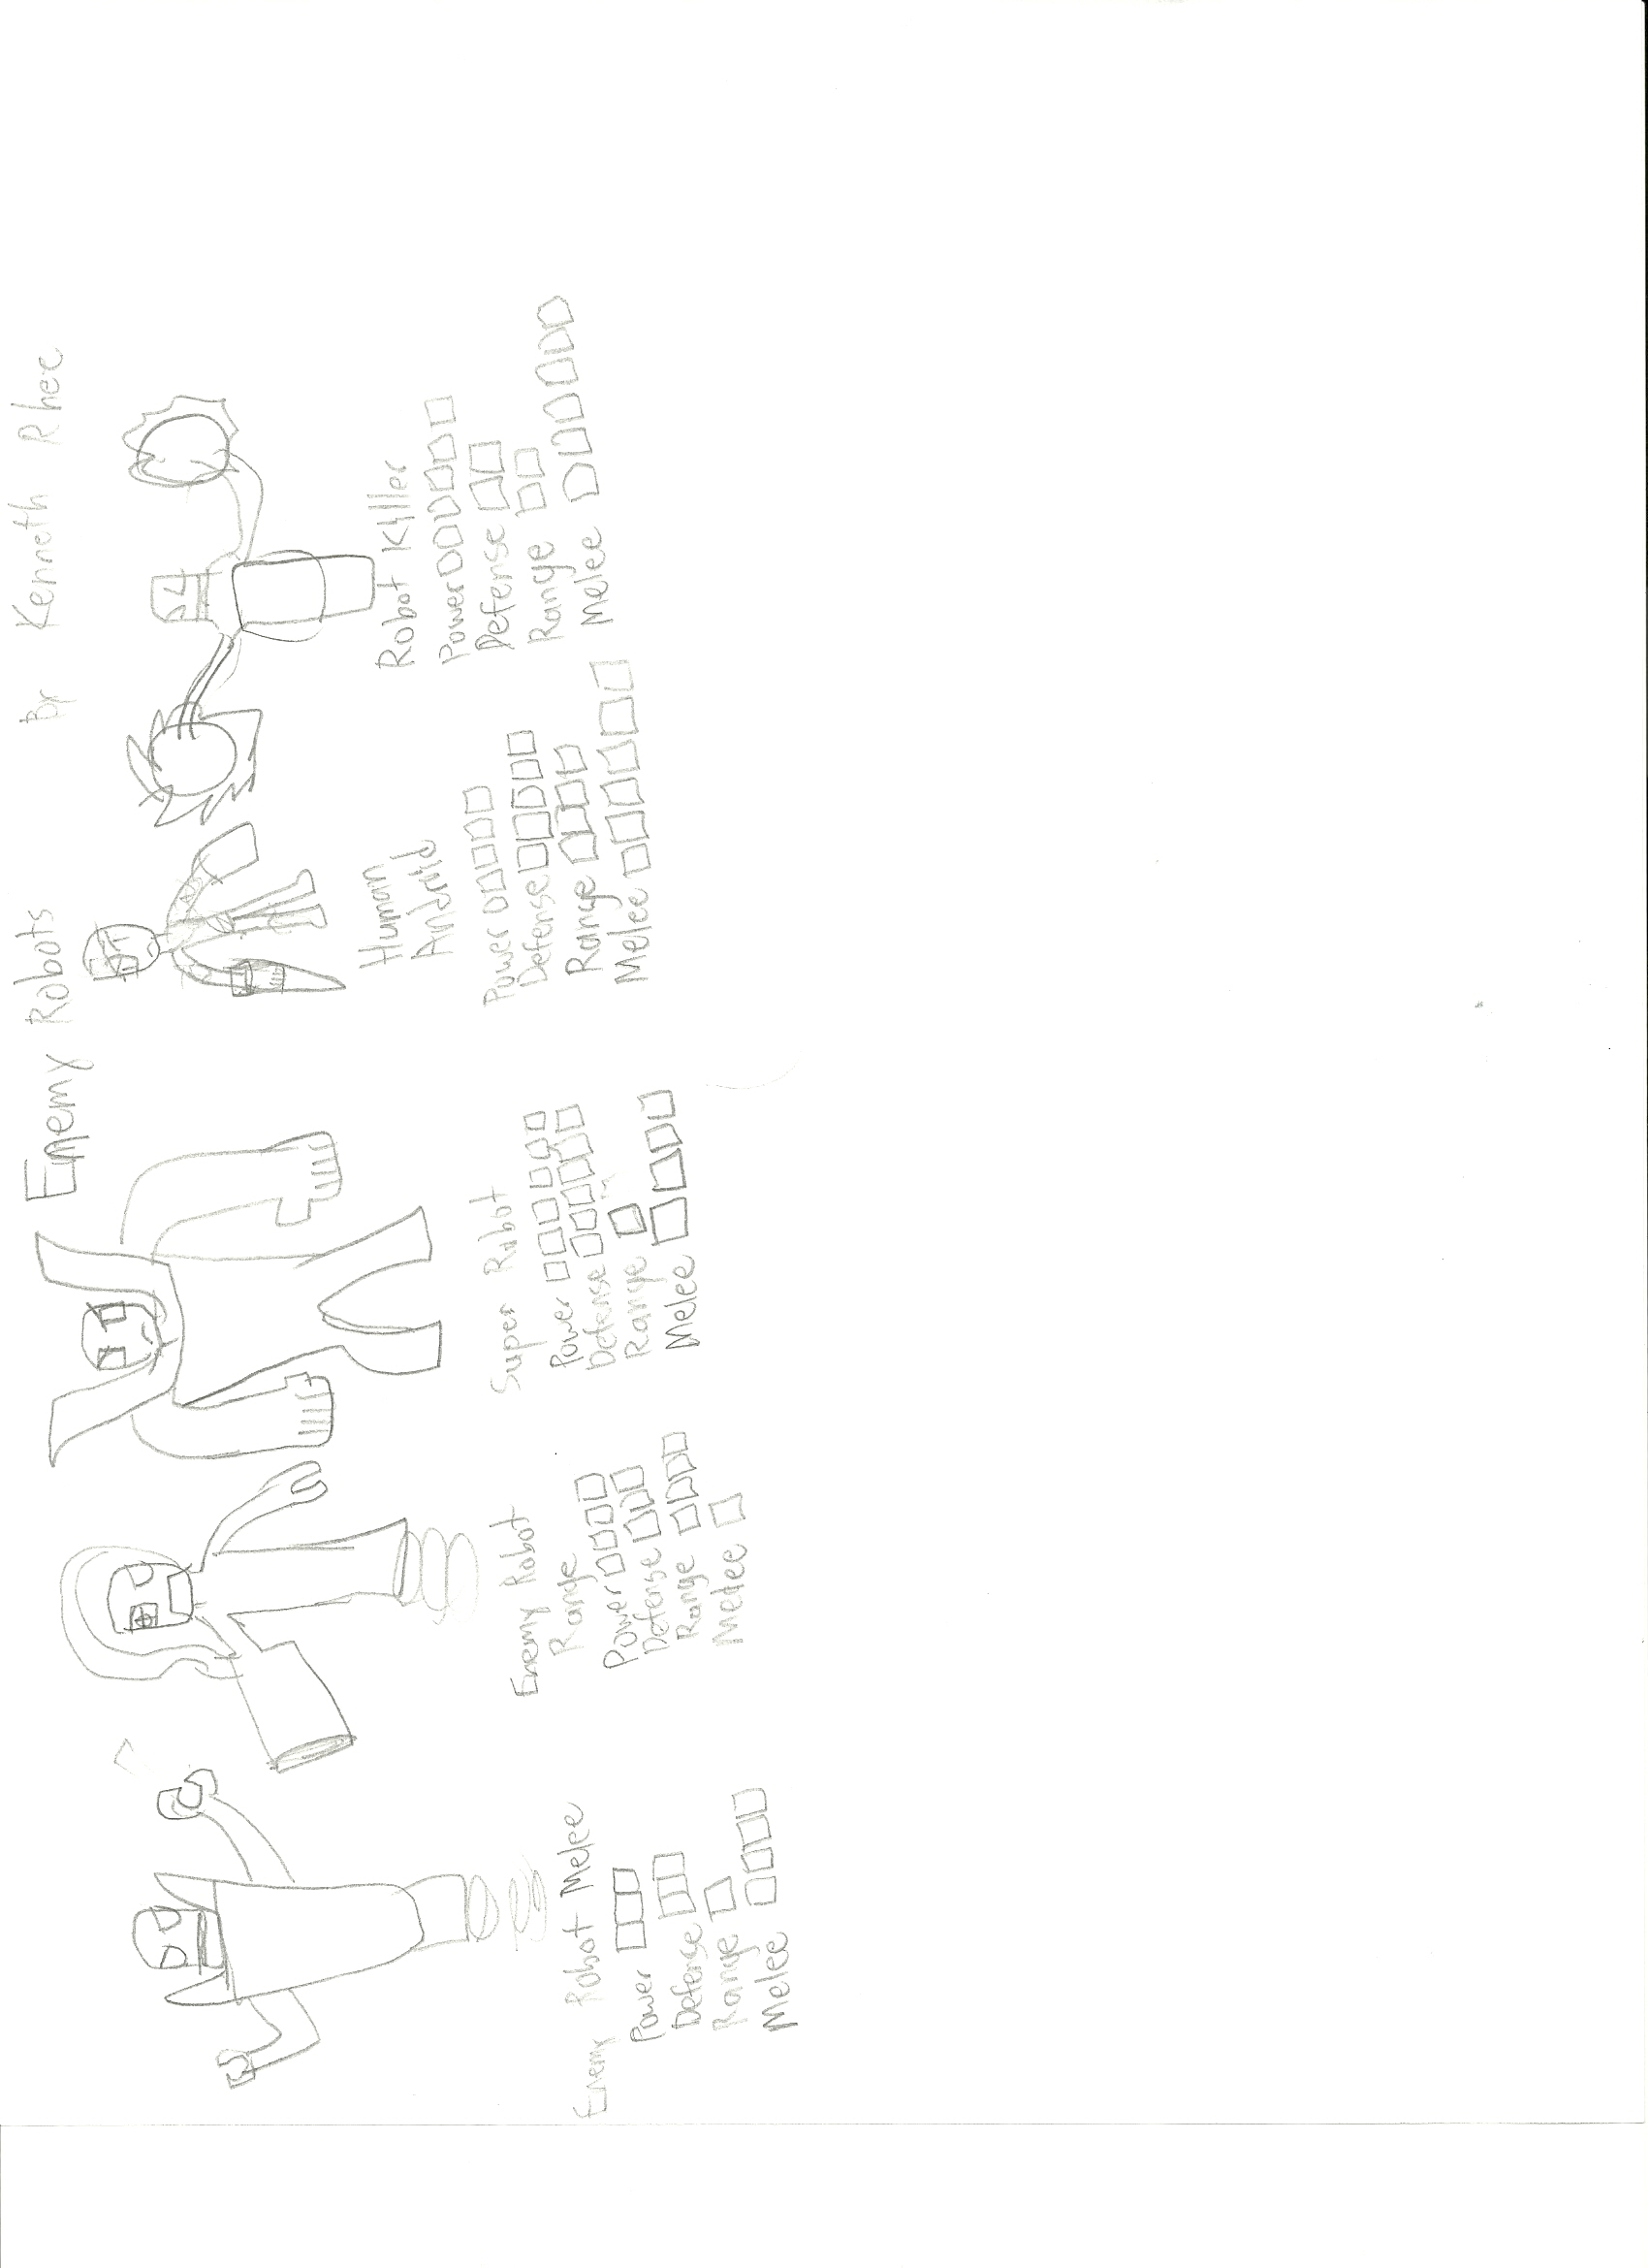 Enemy Robots by Kenneth Rhee
Enemy Robot Melee
Power
Defense
Range
Melee
Enemy Robot
Range
Power
Defense
Range
Melee
Super Robot
Power
Defense
Range
Melee
Human
Android
Power
Defense
Range
Melee
Robot Killer
Power
Defense
Range
Melee